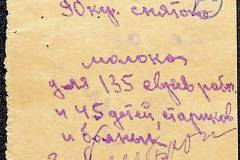 90 кг. снятого
молока
для 135 евреев рабо.
и 45 детей, стариков
и больных